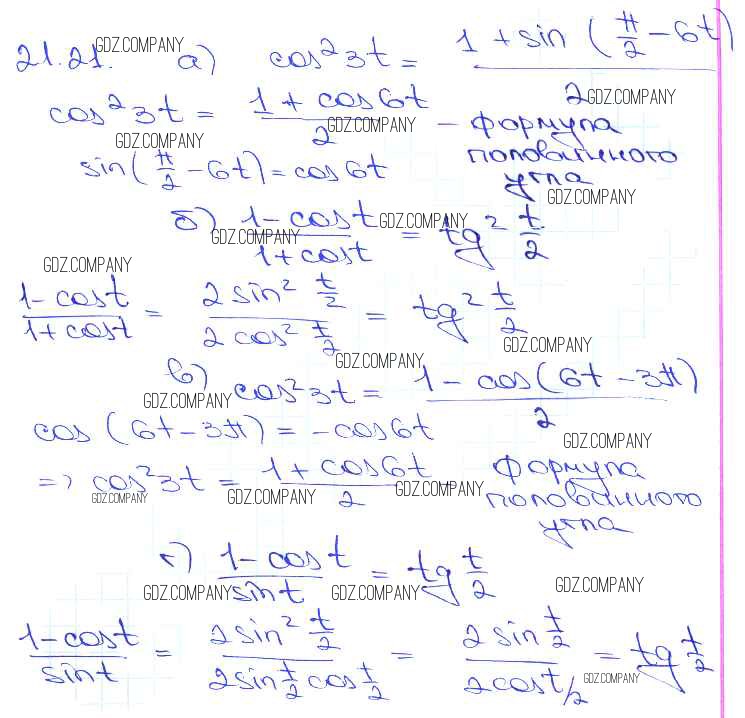 21.21. GDZ.COMPANY а) cos²3t = (1 + sin(π/2 − 6t))/2
GDZ.COMPANY
cos²3t = (1 + cos6t)/2 GDZ.COMPANY – формула
GDZ.COMPANY половинного
sin(π/2 − 6t) = cos6t угла
GDZ.COMPANY
б) (1 − cost)/(1 + cost) = tg² t/2
GDZ.COMPANY GDZ.COMPANY
GDZ.COMPANY
(1 − cost)/(1 + cost) = (2sin² t/2)/(2cos² t/2) = tg² t/2
GDZ.COMPANY
GDZ.COMPANY
в) cos²3t = (1 − cos(6t − 3π))/2
GDZ.COMPANY
cos(6t − 3π) = −cos6t
GDZ.COMPANY
=> cos²3t = (1 + cos6t)/2 – формула
GDZ.COMPANY GDZ.COMPANY GDZ.COMPANY половинного
угла
г) (1 − cost)/sint = tg t/2
GDZ.COMPANY GDZ.COMPANY GDZ.COMPANY
(1 − cost)/sint = (2sin² t/2)/(2sin t/2 cos t/2) = (2sin t/2)/(2cos t/2) = tg t/2
GDZ.COMPANY